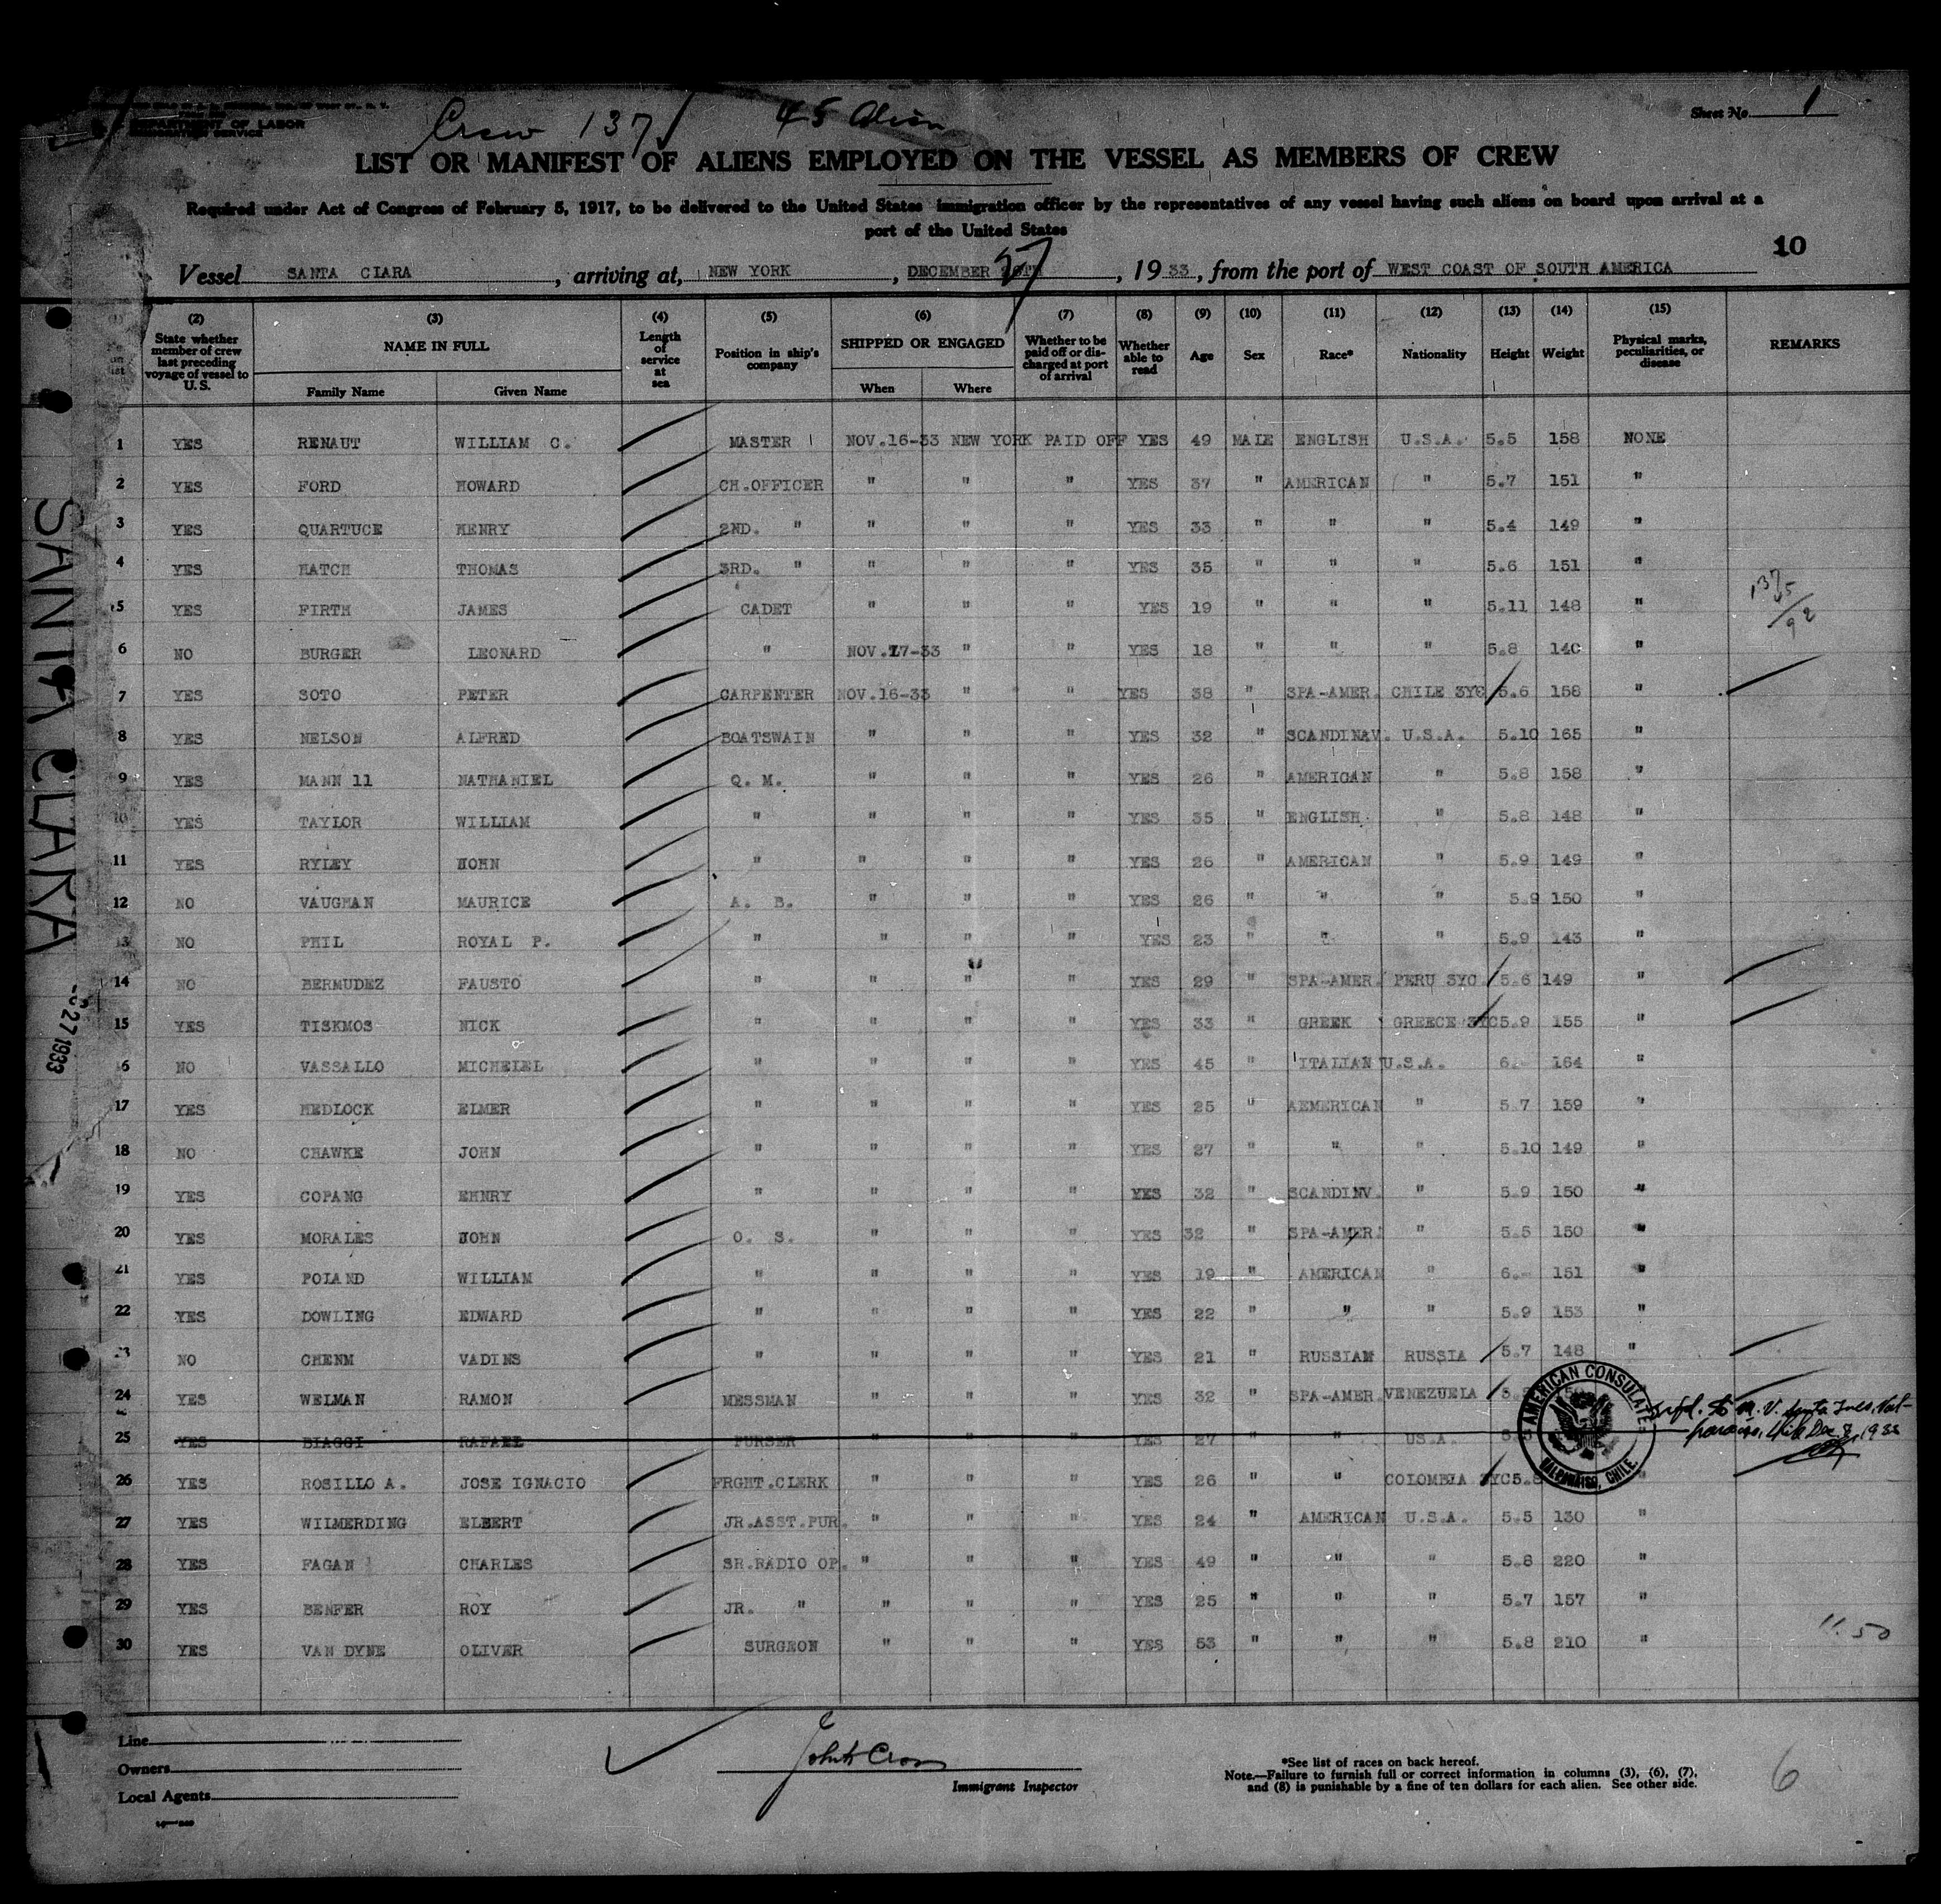 DEPARTMENT OF LABOR
Crew 137 45 Alien
Sheet No. 1
LIST OR MANIFEST OF ALIENS EMPLOYED ON THE VESSEL AS MEMBERS OF CREW
Required under Act of Congress of February 5, 1917, to be delivered to the United States immigration officer by the representatives of any vessel having such aliens on board upon arrival at a
port of the United States
10
Vessel SANTA CLARA, arriving at, NEW YORK, DECEMBER 27, 1933, from the port of WEST COAST OF SOUTH AMERICA
(2) (3) (4) (5) (6) (7) (8) (9) (10) (11) (12) (13) (14) (15)
State whether member of crew last preceding voyage of vessel to U.S. NAME IN FULL Family Name Given Name Length of service at sea Position in ship's company SHIPPED OR ENGAGED When Where Whether to be paid off or discharged at port of arrival Whether able to read Age Sex Race* Nationality Height Weight Physical marks, peculiarities, or disease REMARKS
1 YES RENAUT WILLIAM C. MASTER NOV.16-33 NEW YORK PAID OFF YES 49 MALE ENGLISH U.S.A. 5.5 158 NONE
2 YES FORD HOWARD CH.OFFICER " " " YES 37 " AMERICAN " 5.7 151 "
3 YES QUARTUCE HENRY 2ND. " " " " YES 33 " " " 5.4 149 "
4 YES HATCH THOMAS 3RD. " " " " YES 35 " " " 5.6 151 "
5 YES FIRTH JAMES CADET " " " YES 19 " " " 5.11 148 "
6 NO BURGER LEONARD " NOV.17-33 " " YES 18 " " " 5.8 140 "
7 YES SOTO PETER CARPENTER NOV.16-33 " " YES 38 " SPA-AMER. CHILE 3YC 5.6 158 "
8 YES NELSON ALFRED BOATSWAIN " " " YES 32 " SCANDINAV. U.S.A. 5.10 165 "
9 YES MANN 11 NATHANIEL Q. M. " " " YES 26 " AMERICAN " 5.8 158 "
10 YES TAYLOR WILLIAM " " " " YES 35 " ENGLISH " 5.8 148 "
11 YES RYLEY JOHN " " " " YES 26 " AMERICAN " 5.9 149 "
12 NO VAUGHAN MAURICE A. B. " " " YES 26 " " " 5.9 150 "
13 NO PHIL ROYAL P. " " " " YES 23 " " " 5.9 143 "
14 NO BERMUDEZ FAUSTO " " " " YES 29 " SPA-AMER. PERU 3YC 5.6 149 "
15 YES TISKMOS NICK " " " " YES 33 " GREEK GREECE 3YC 5.9 155 "
16 NO VASSALLO MICHELEL " " " " YES 45 " ITALIAN U.S.A. 6.- 164 "
17 YES HEDLOCK ELMER " " " " YES 25 " AEMERICAN " 5.7 159 "
18 NO CHAWKE JOHN " " " " YES 27 " " " 5.10 149 "
19 YES COPANG EHNRY " " " " YES 32 " SCANDINV. " 5.9 150 "
20 YES MORALES JOHN O. S. " " " YES 32 " SPA-AMER. " 5.5 150 "
21 YES POLAND WILLIAM " " " " YES 19 " AMERICAN " 6.- 151 "
22 YES DOWLING EDWARD " " " " YES 22 " " " 5.9 153 "
23 NO CHENM VADINS " " " " YES 21 " RUSSIAN RUSSIA 5.7 148 "
24 YES WELMAN RAMON MESSMAN " " " YES 32 " SPA-AMER. VENEZUELA
25 YES BIAGGI RAFAEL PURSER " " " YES 27 " " US.A.
trsfd. to M.V. Santa Ines, Val-
paraiso, Chile Dec. 8, 1933
AMERICAN CONSULATE
VALPARAISO, CHILE.
26 YES ROSILLO A. JOSE IGNACIO FRGHT.CLERK " " " YES 26 " " COLOMBIA 3YC 5.8 "
27 YES WILMERDING ELBERT JR.ASST.PUR. " " " YES 24 " AMERICAN U.S.A. 5.5 130 "
28 YES FAGAN CHARLES SR.RADIO OP. " " " YES 49 " " " 5.8 220 "
29 YES BENFER ROY JR. " " " " YES 25 " " " 5.7 157 "
30 YES VAN DYNE OLIVER SURGEON " " " YES 53 " " " 5.8 210 "
SANTA CLARA
27 1933
Line
Owners
Local Agents
John Cross
Immigrant Inspector
*See list of races on back hereof.
Note.—Failure to furnish full or correct information in columns (3), (6), (7),
and (8) is punishable by a fine of ten dollars for each alien. See other side.
6